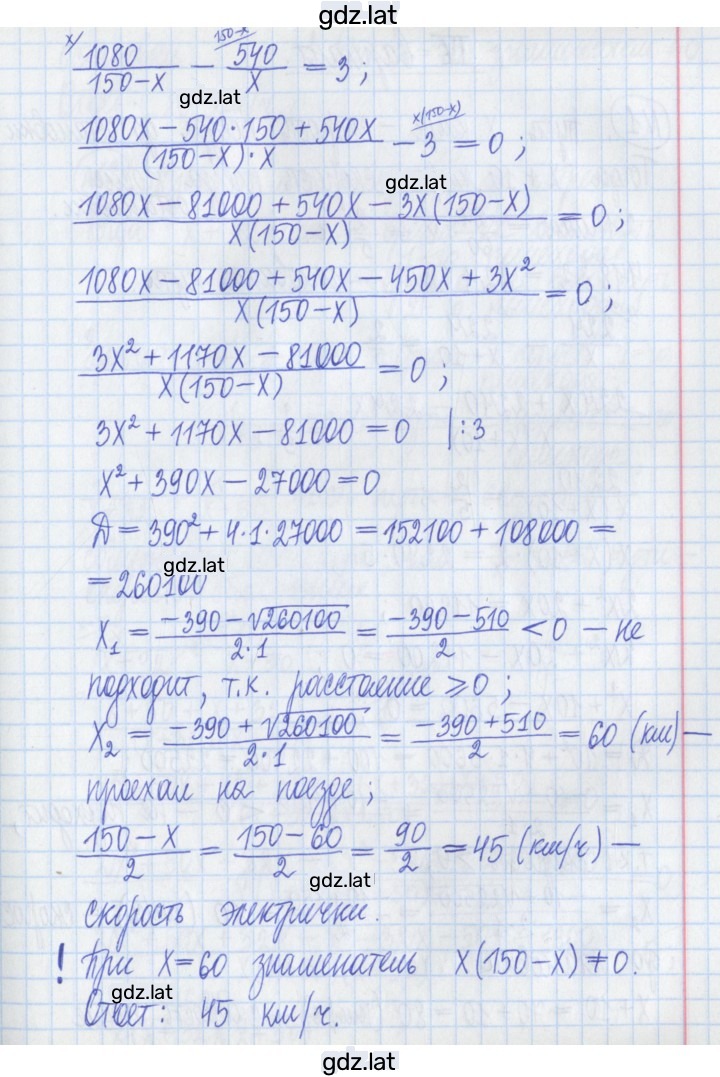 gdz.lat
x/ 1080/(150-x) - 540/x (150-x = 3;
gdz.lat
(1080x - 540·150 + 540x)/((150-x)·x) - 3 x(150-x) = 0;
gdz.lat
(1080x - 81000 + 540x - 3x(150-x))/(x(150-x)) = 0;
(1080x - 81000 + 540x - 450x + 3x²)/(x(150-x)) = 0;
(3x² + 1170x - 81000)/(x(150-x)) = 0;
3x² + 1170x - 81000 = 0 |:3
x² + 390x - 27000 = 0
Д = 390² + 4·1·27000 = 152100 + 108000 =
gdz.lat
= 260100
x₁ = (-390 - √260100)/(2·1) = (-390 - 510)/2 < 0 – не
подходит, т.к. расстояние ⩾ 0;
x₂ = (-390 + √260100)/(2·1) = (-390 + 510)/2 = 60 (км) –
проехал на поезде;
(150 - x)/2 = (150 - 60)/2 = 90/2 = 45 (км/ч) –
gdz.lat
скорость электрички.
! При x = 60 знаменатель x(150-x) ≠ 0.
gdz.lat
Ответ: 45 км/ч.
gdz.lat